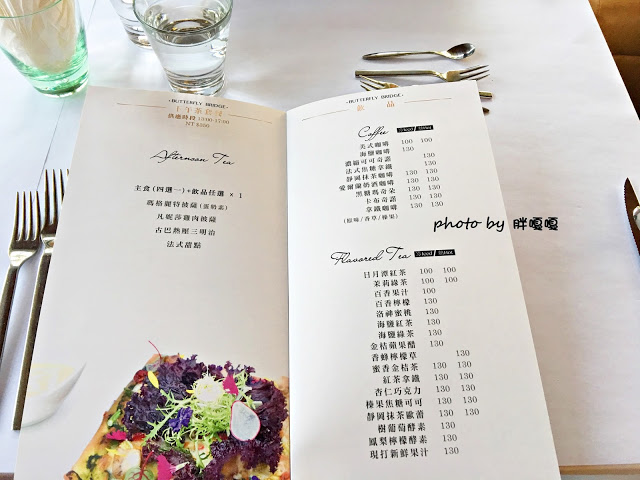 ·BUTTERFLY BRIDGE·
下午茶套餐
供應時段 13:00-17:00
NT $250
Afternoon Tea
主食(四選一)+飲品任選 × 1
瑪格麗特披薩(蛋奶素)
凡妮莎雞肉披薩
古巴熱壓三明治
法式甜點
·BUTTERFLY BRIDGE·
飲 品
Coffee 冷Iced / 熱Hot
美式咖啡 100 100
海鹽咖啡 130
濃縮可可奇諾 130
法式焦糖拿鐵 130 130
靜岡抹茶咖啡 130 130
愛爾蘭奶酒咖啡 130 130
黑糖瑪奇朵 130 130
卡布奇諾 130 130
拿鐵咖啡 130 130
(原味/香草/榛果)
Flavored Tea 冷Iced / 熱Hot
日月潭紅茶 100 100
茉莉綠茶 100 100
百香果汁 100
百香檸檬 130
洛神蜜桃 130
海鹽紅茶 130
海鹽綠茶 130
金桔蘋果醋 130
香蜂檸檬草 130
蜜香金桔茶 130 130
紅茶拿鐵 130 130
杏仁巧克力 130 130
榛果焦糖可可 130 130
靜岡抹茶歐蕾 130 130
樹葡萄酵素 130
鳳梨檸檬酵素 130
現打新鮮果汁 130
photo by 胖嘎嘎